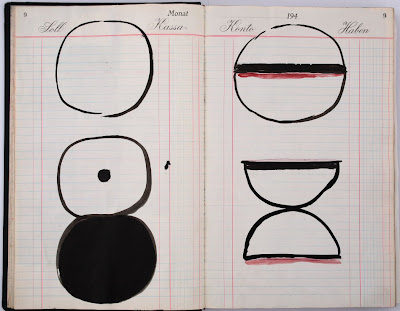 9 Monat
Soll Kassa-
194 9
Konto Haben